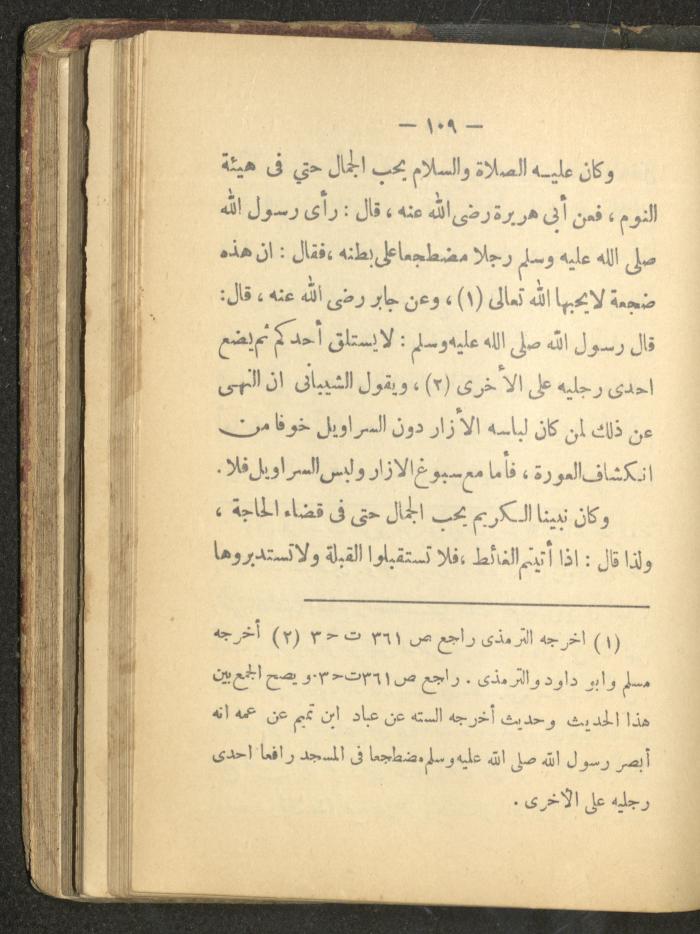 — ١٠٩ —
وكان عليه الصلاة والسلام يحب الجمال حتي فى هيئة
النوم ، فعن أبى هريرة رضى الله عنه ، قال : رأى رسول الله
صلى الله عليه وسلم رجلا مضطجعا على بطنه ،فقال : ان هذه
ضجعة لايحبها الله تعالى (١) ، وعن جابر رضى الله عنه ، قال:
قال رسول الله صلى الله عليه وسلم : لايستلق أحدكم ثم يضع
احدى رجليه على الأخرى (٢) ، ويقول الشيبانى ان النهى
عن ذلك لمن كان لباسه الأزار دون السراويل خوفا من
انكشاف العورة ، فأما مع سبوغ الازار ولبس السراويل فلا .
وكان نبينا الكريم يحب الجمال حتى فى قضاء الحاجة ،
ولذا قال : اذا أتيتم الغائط ،فلا تستقبلوا القبلة ولا تستدبروها
(١) اخرجه الترمذى راجع ص ٣٦١ ت ح ٣ (٢) أخرجه
مسلم وابو داود والترمذى . راجع ص ٣٦١ ت ح ٣٠ و يصح الجمع بين
هذا الحديث وحديث أخرجه السته عن عباد ابن تميم عن عمه انه
أبصر رسول الله صلى الله عليه وسلم مضطجعا فى المسجد رافعا احدى
رجليه على الأخرى .